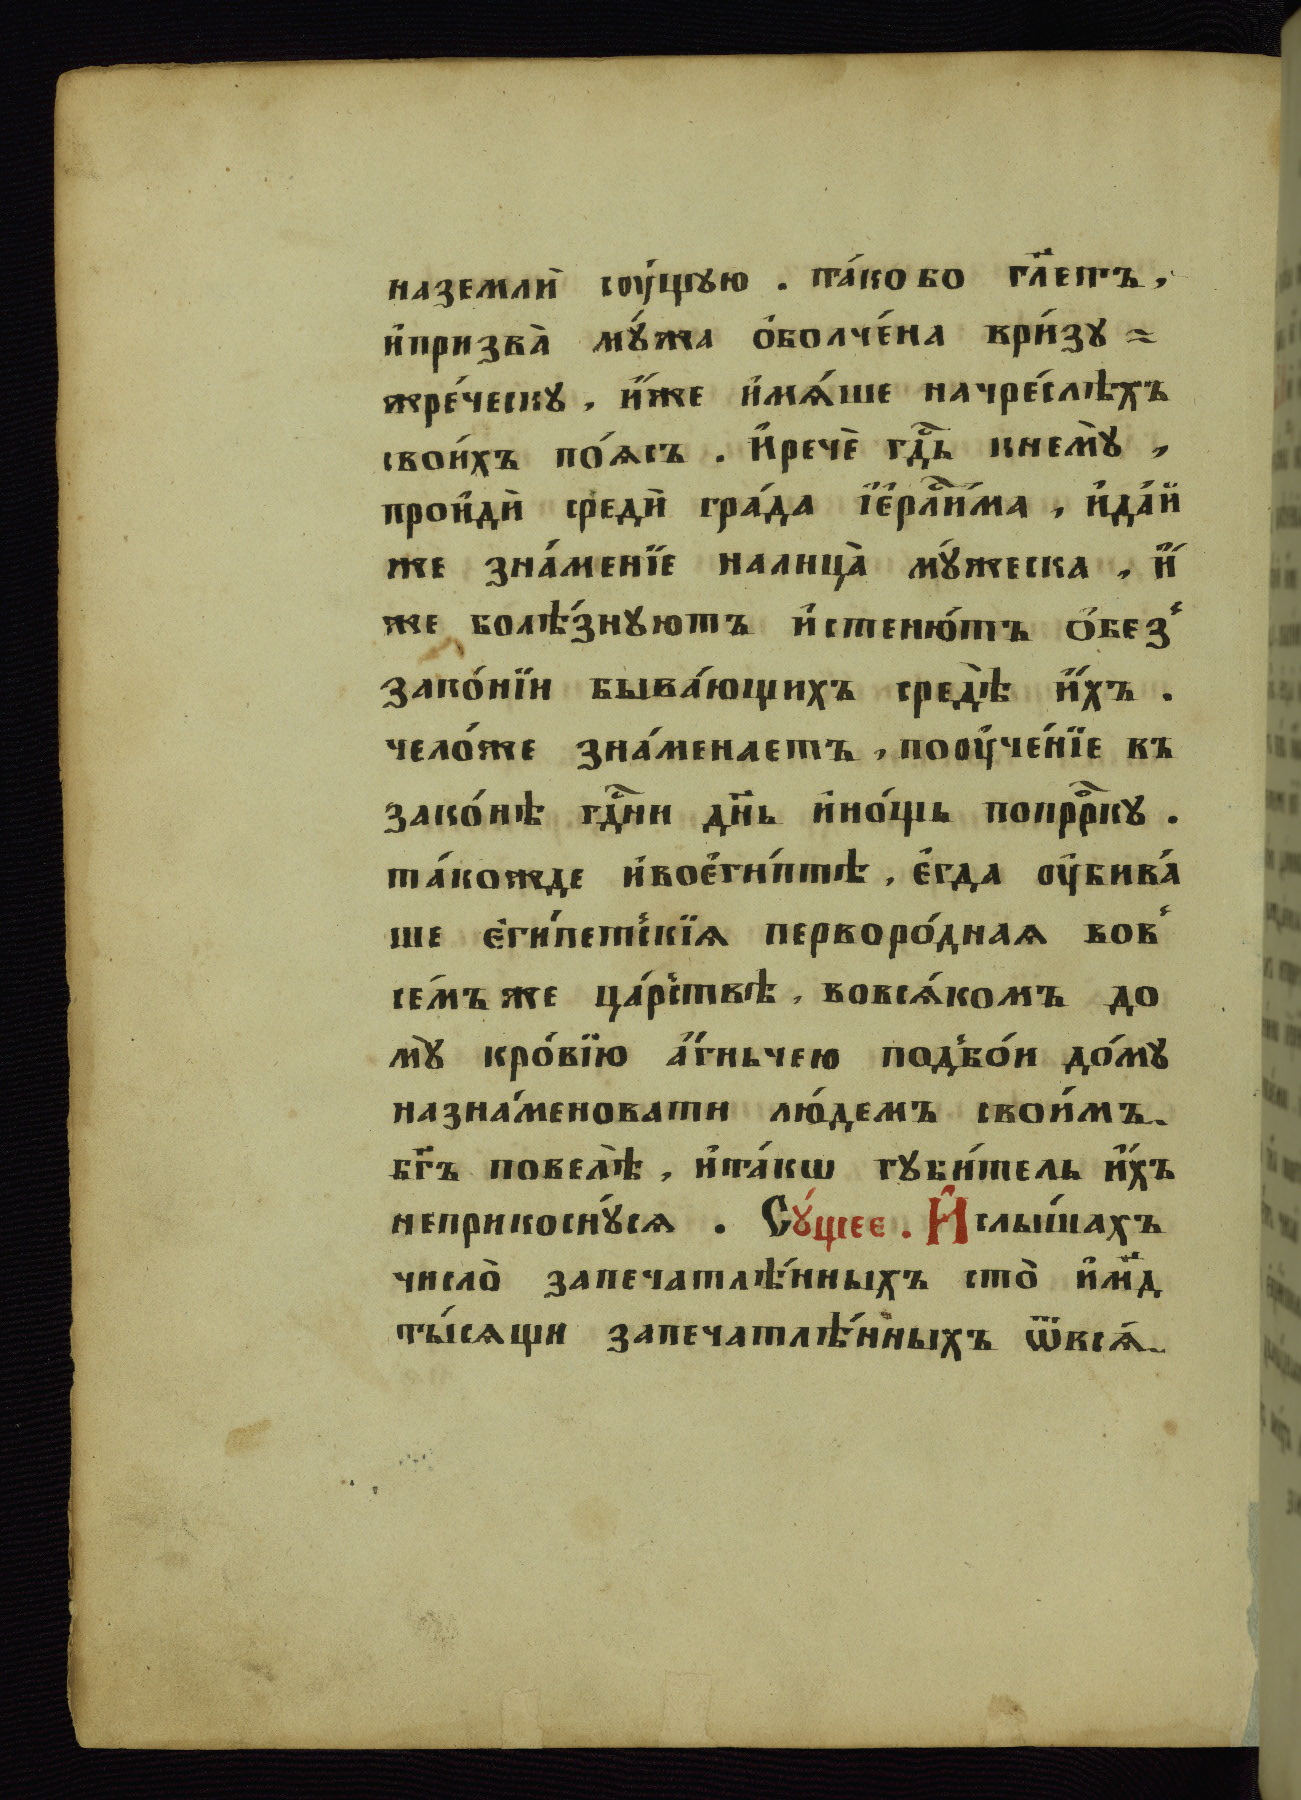 наземлѝ сꙋ́щꙋю . та́кобо гл҃етъ,
и҆призва̀ мꙋ́жа ѻ҆болче́на ври́зꙋ =
жре́ческꙋ, и҆́же и҆мѧ́ше начре́слѣхъ
свои́хъ по́ѧсъ . И҆речѐ гдⷭ҇ь кнемꙋ̀ ,
прои҆дѝ средѝ гра́да і҆е҆рⷭ҇ли́ма , и҆да́й
же зна́менїе налица̀ мꙋ́жеска , и҆́
же болѣ́знꙋютъ и҆стеню́тъ ѻ҆без̾
зако́нїи быва́ющихъ средѣ̀ и҆́хъ .
чело́же зна́менаетъ , поꙋ҆че́нїе въ
зако́нѣ гдⷭ҇ни дн҃ь и҆но́щь попррⷪ҇кꙋ .
та́кожде и҆вое҆ги́птѣ , е҆гда ᲂу҆бива́
ше є҆ги́петс̾кїѧ первоpо́днаѧ вов̾
се́мъже ца́рс̾твѣ , вовсѧ́комъ до
мꙋ̀ кро́вїю а҆́гньчею под̾во́и до́мꙋ
назна́меновати лю́демъ свои́мъ.
бг҃ъ повелѣ̀ , и҆та́кѡ гꙋби́тель и҆́хъ
неприкоснꙋ́сѧ . Сꙋ́щее . И҆слы́шахъ
число̀ запечатлѣ́нныхъ сто̀ и҆м҃д
ты́сѧщи запечатлѣ́нныхъ ѿвсѧ́.